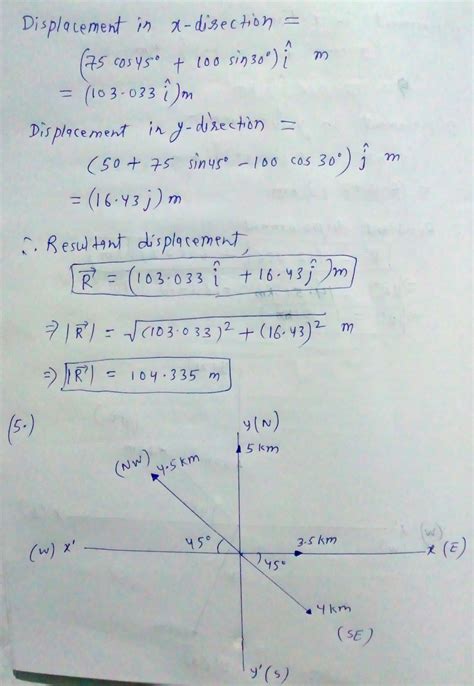 Displacement in x-direction =
(75 cos45° + 100 sin30°) î m
= (103.033 î)m
Displacement in y-direction =
(50 + 75 sin45° - 100 cos30°) ĵ m
= (16.43 j) m
∴ Resultant displacement,
R⃗ = (103.033 î + 16.43 ĵ)m
⇒ |R⃗| = √(103.033)² + (16.43)² m
⇒ |R⃗| = 104.335 m
(5.)
y(N)
5 km
(NW) 4.5 km
(W) x' 45° 3.5 km x (E)
45°
4 km
(SE)
y'(S)